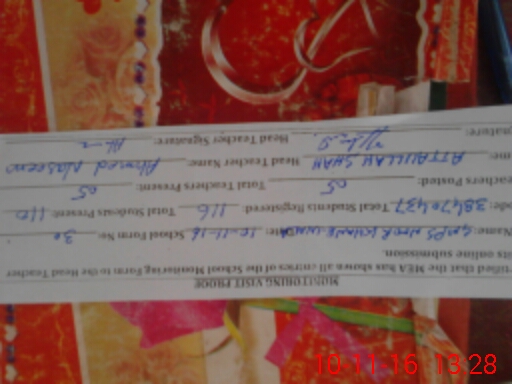 MONITORING VISIT PROOF
rtified that the MEA has shown all entries of the School Monitoring Form to the Head Teacher
its online submission.
Name: GMPS Date: 10-11-16 School Form No: 30
ode: 38470437 Total Students Registered: 116 Total Students Present: 110
eachers Posted: 05 Total Teachers Present: 05
me: ATTAULLAH SHAH Head Teacher Name: Ahmed Naseem
nature: Head Teacher Signature:
10-11-16 13:28